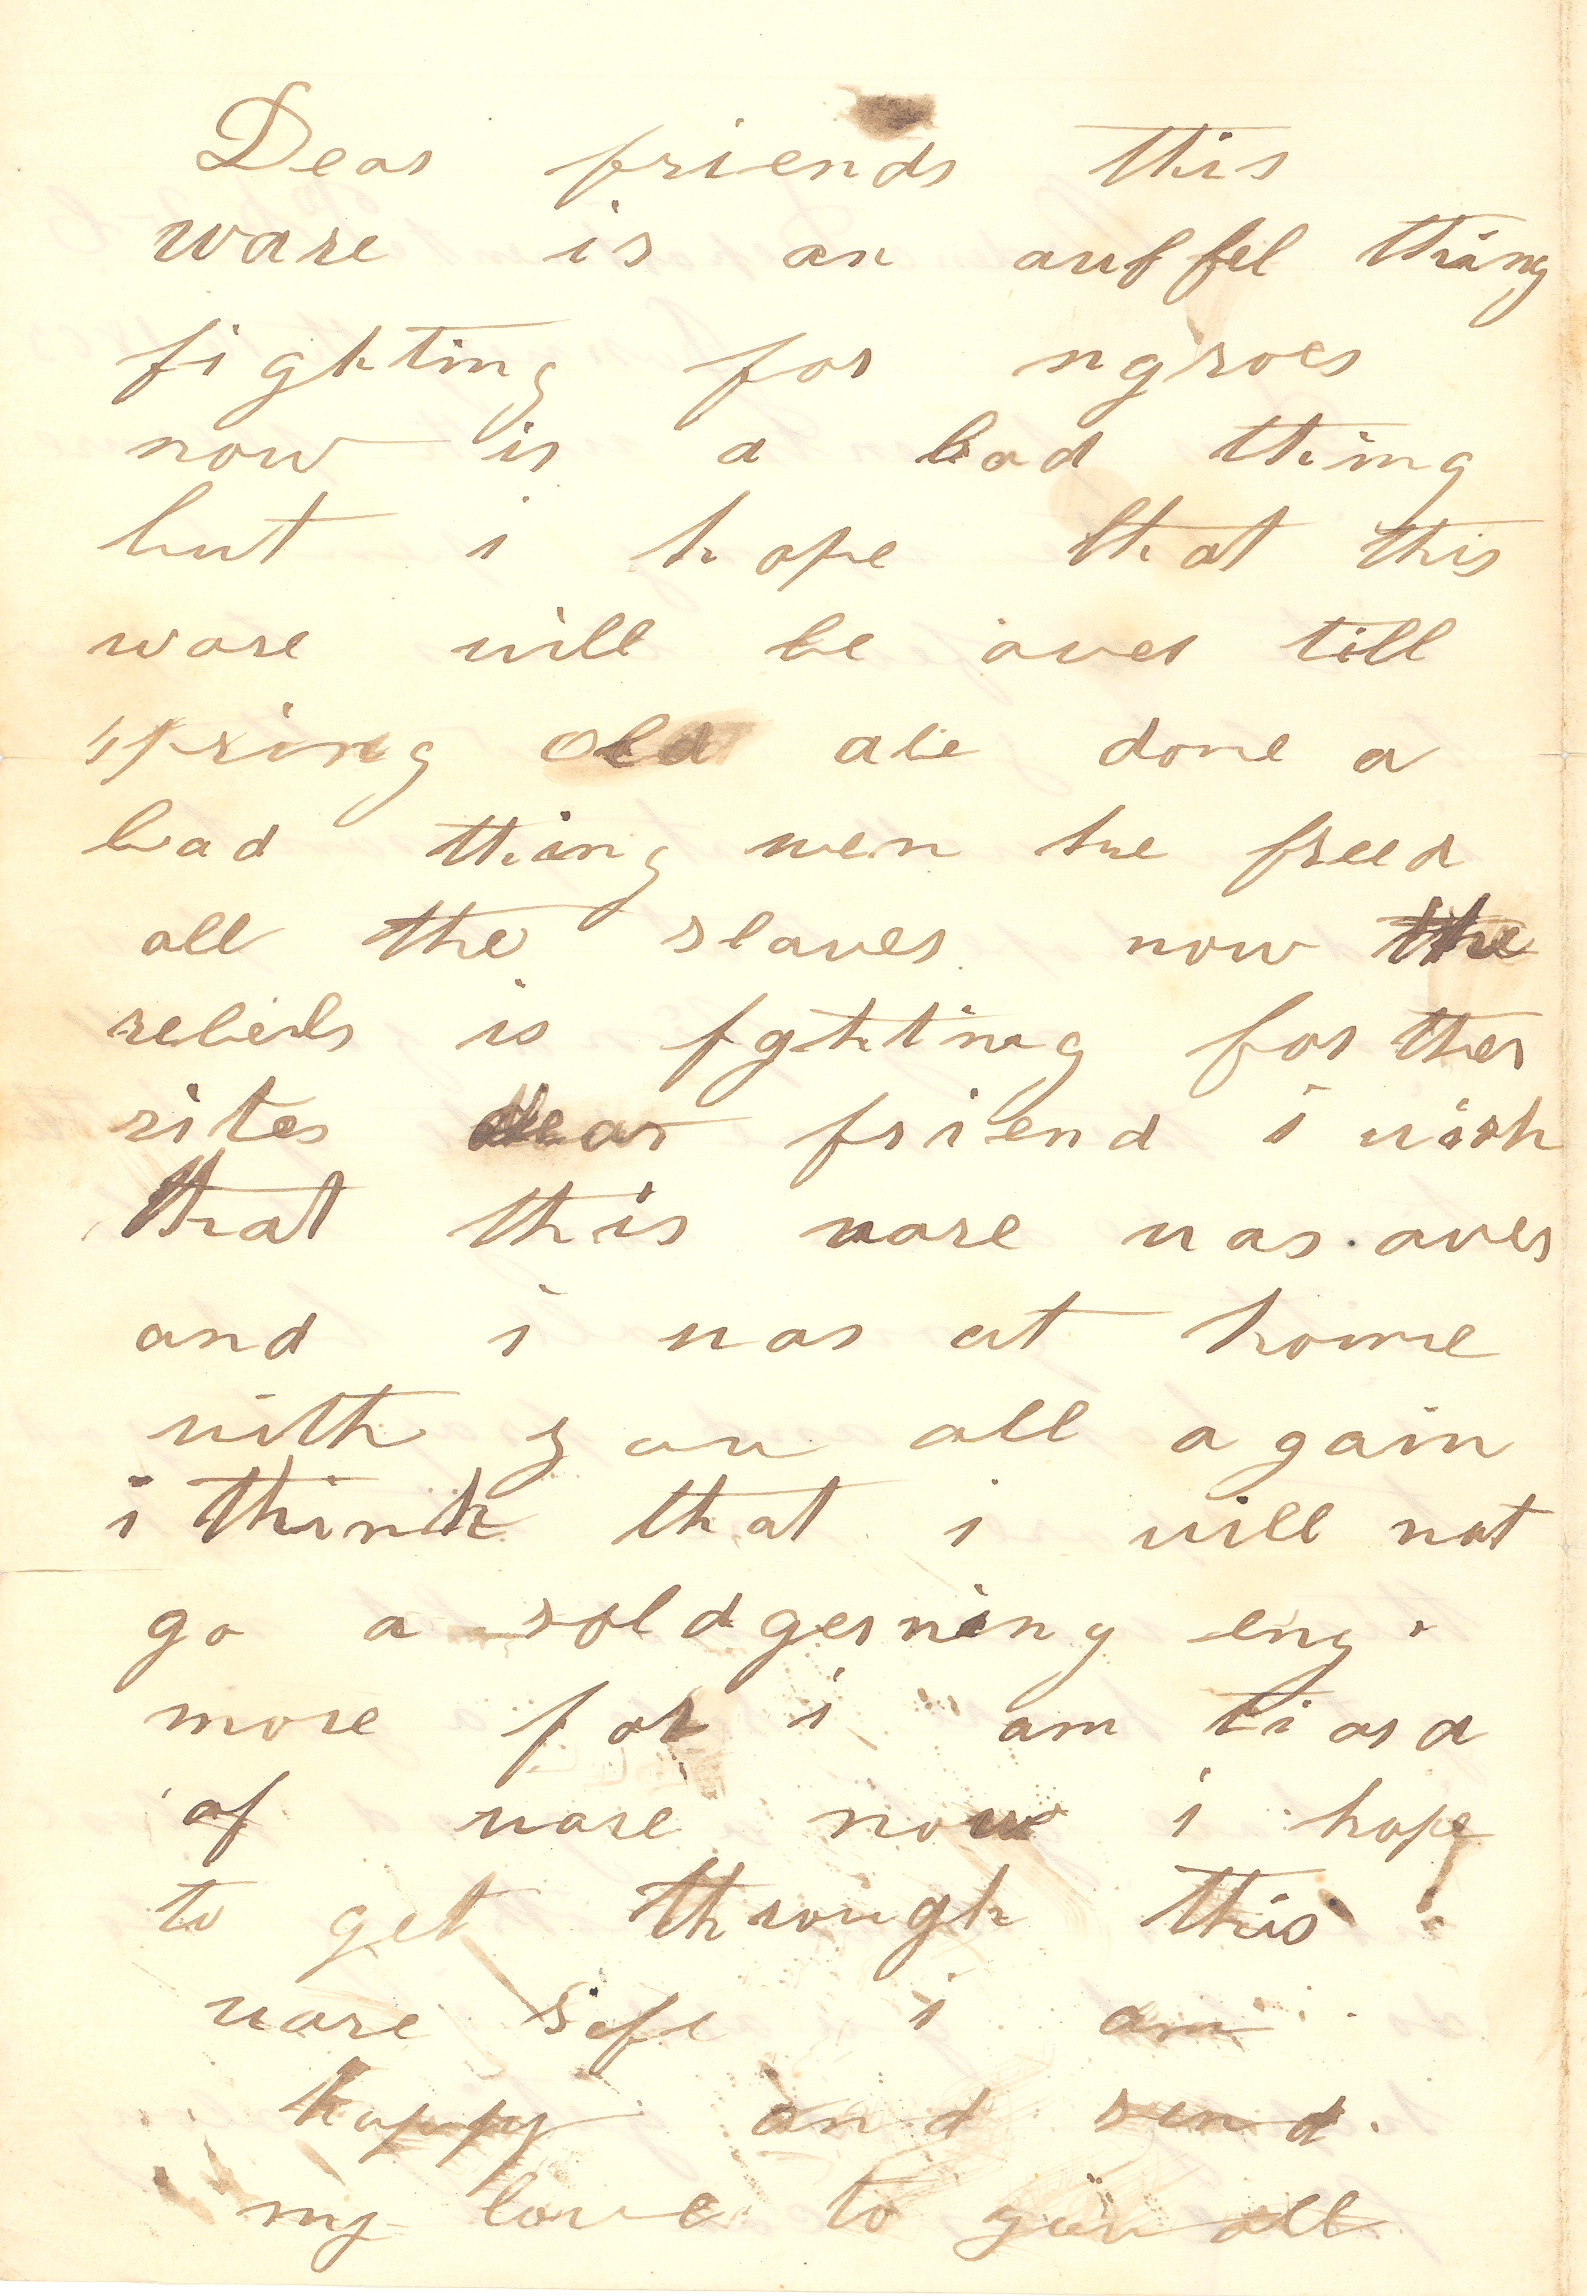 Dear friends this
ware is an auffel thing
fighting for ngroes
now is a bad thing
but i hope that this
ware will be over till
spring old abe done a
bad thing wen he freed
all the slaves now the
rebels is fghting for ther
rites dear friend i wish
that this ware was over
and i was at home
with you all again
i think that i will not
go a soldgerning eny
more for i am tiard
of ware now i hope
to get through this
ware safe i am
happy and send
my love to you all